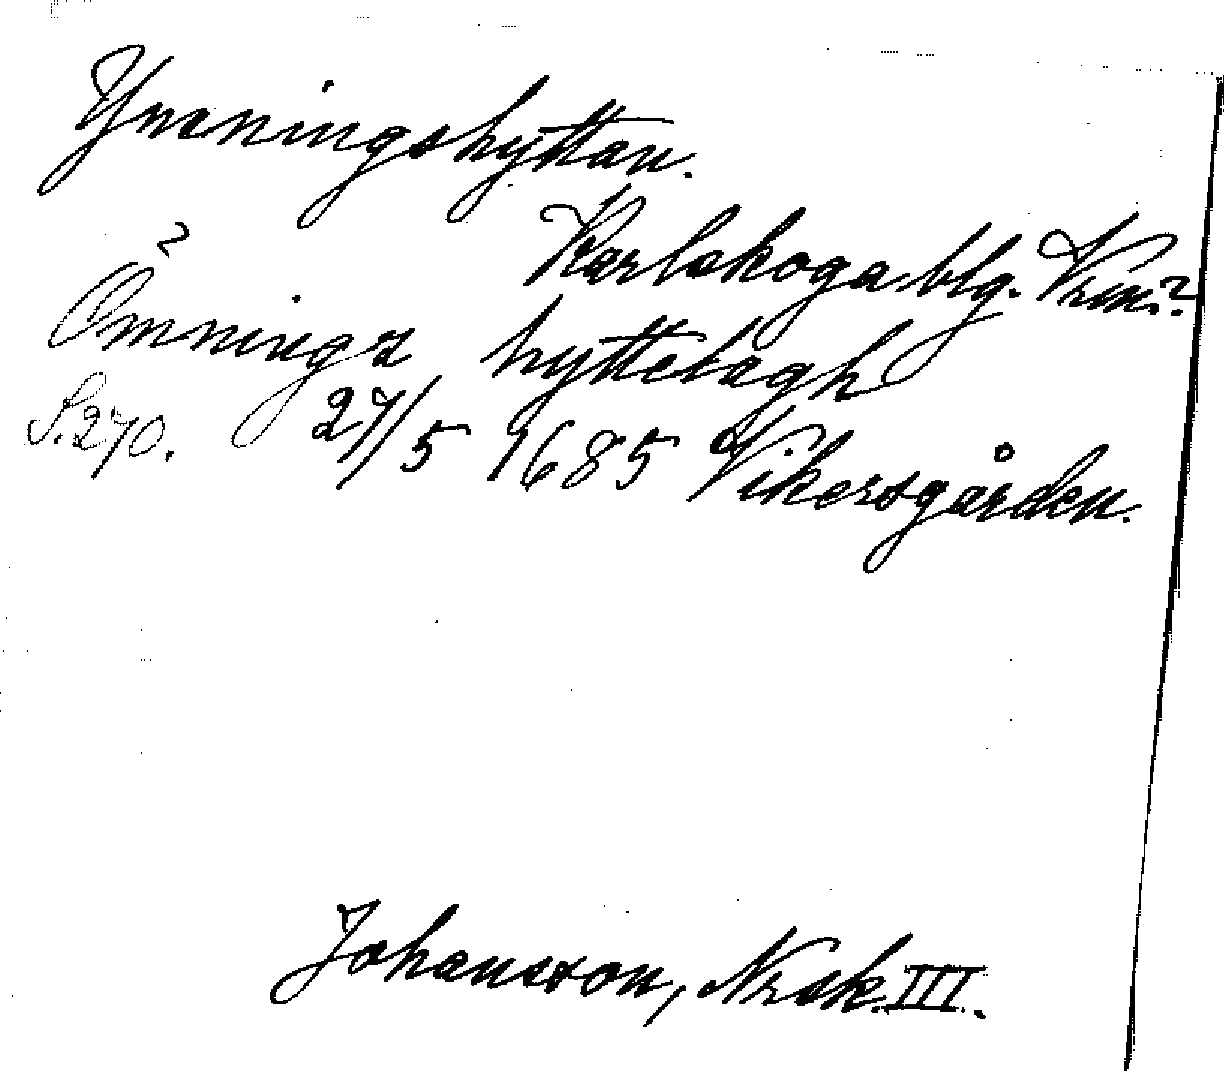 Yxeningshyttan.
Karlskoga blg. Vrm.?
?
Ömninga hyttelagh
S. 270. 27/5 1685 Vikersgården.
Johansson, Norsk. III.